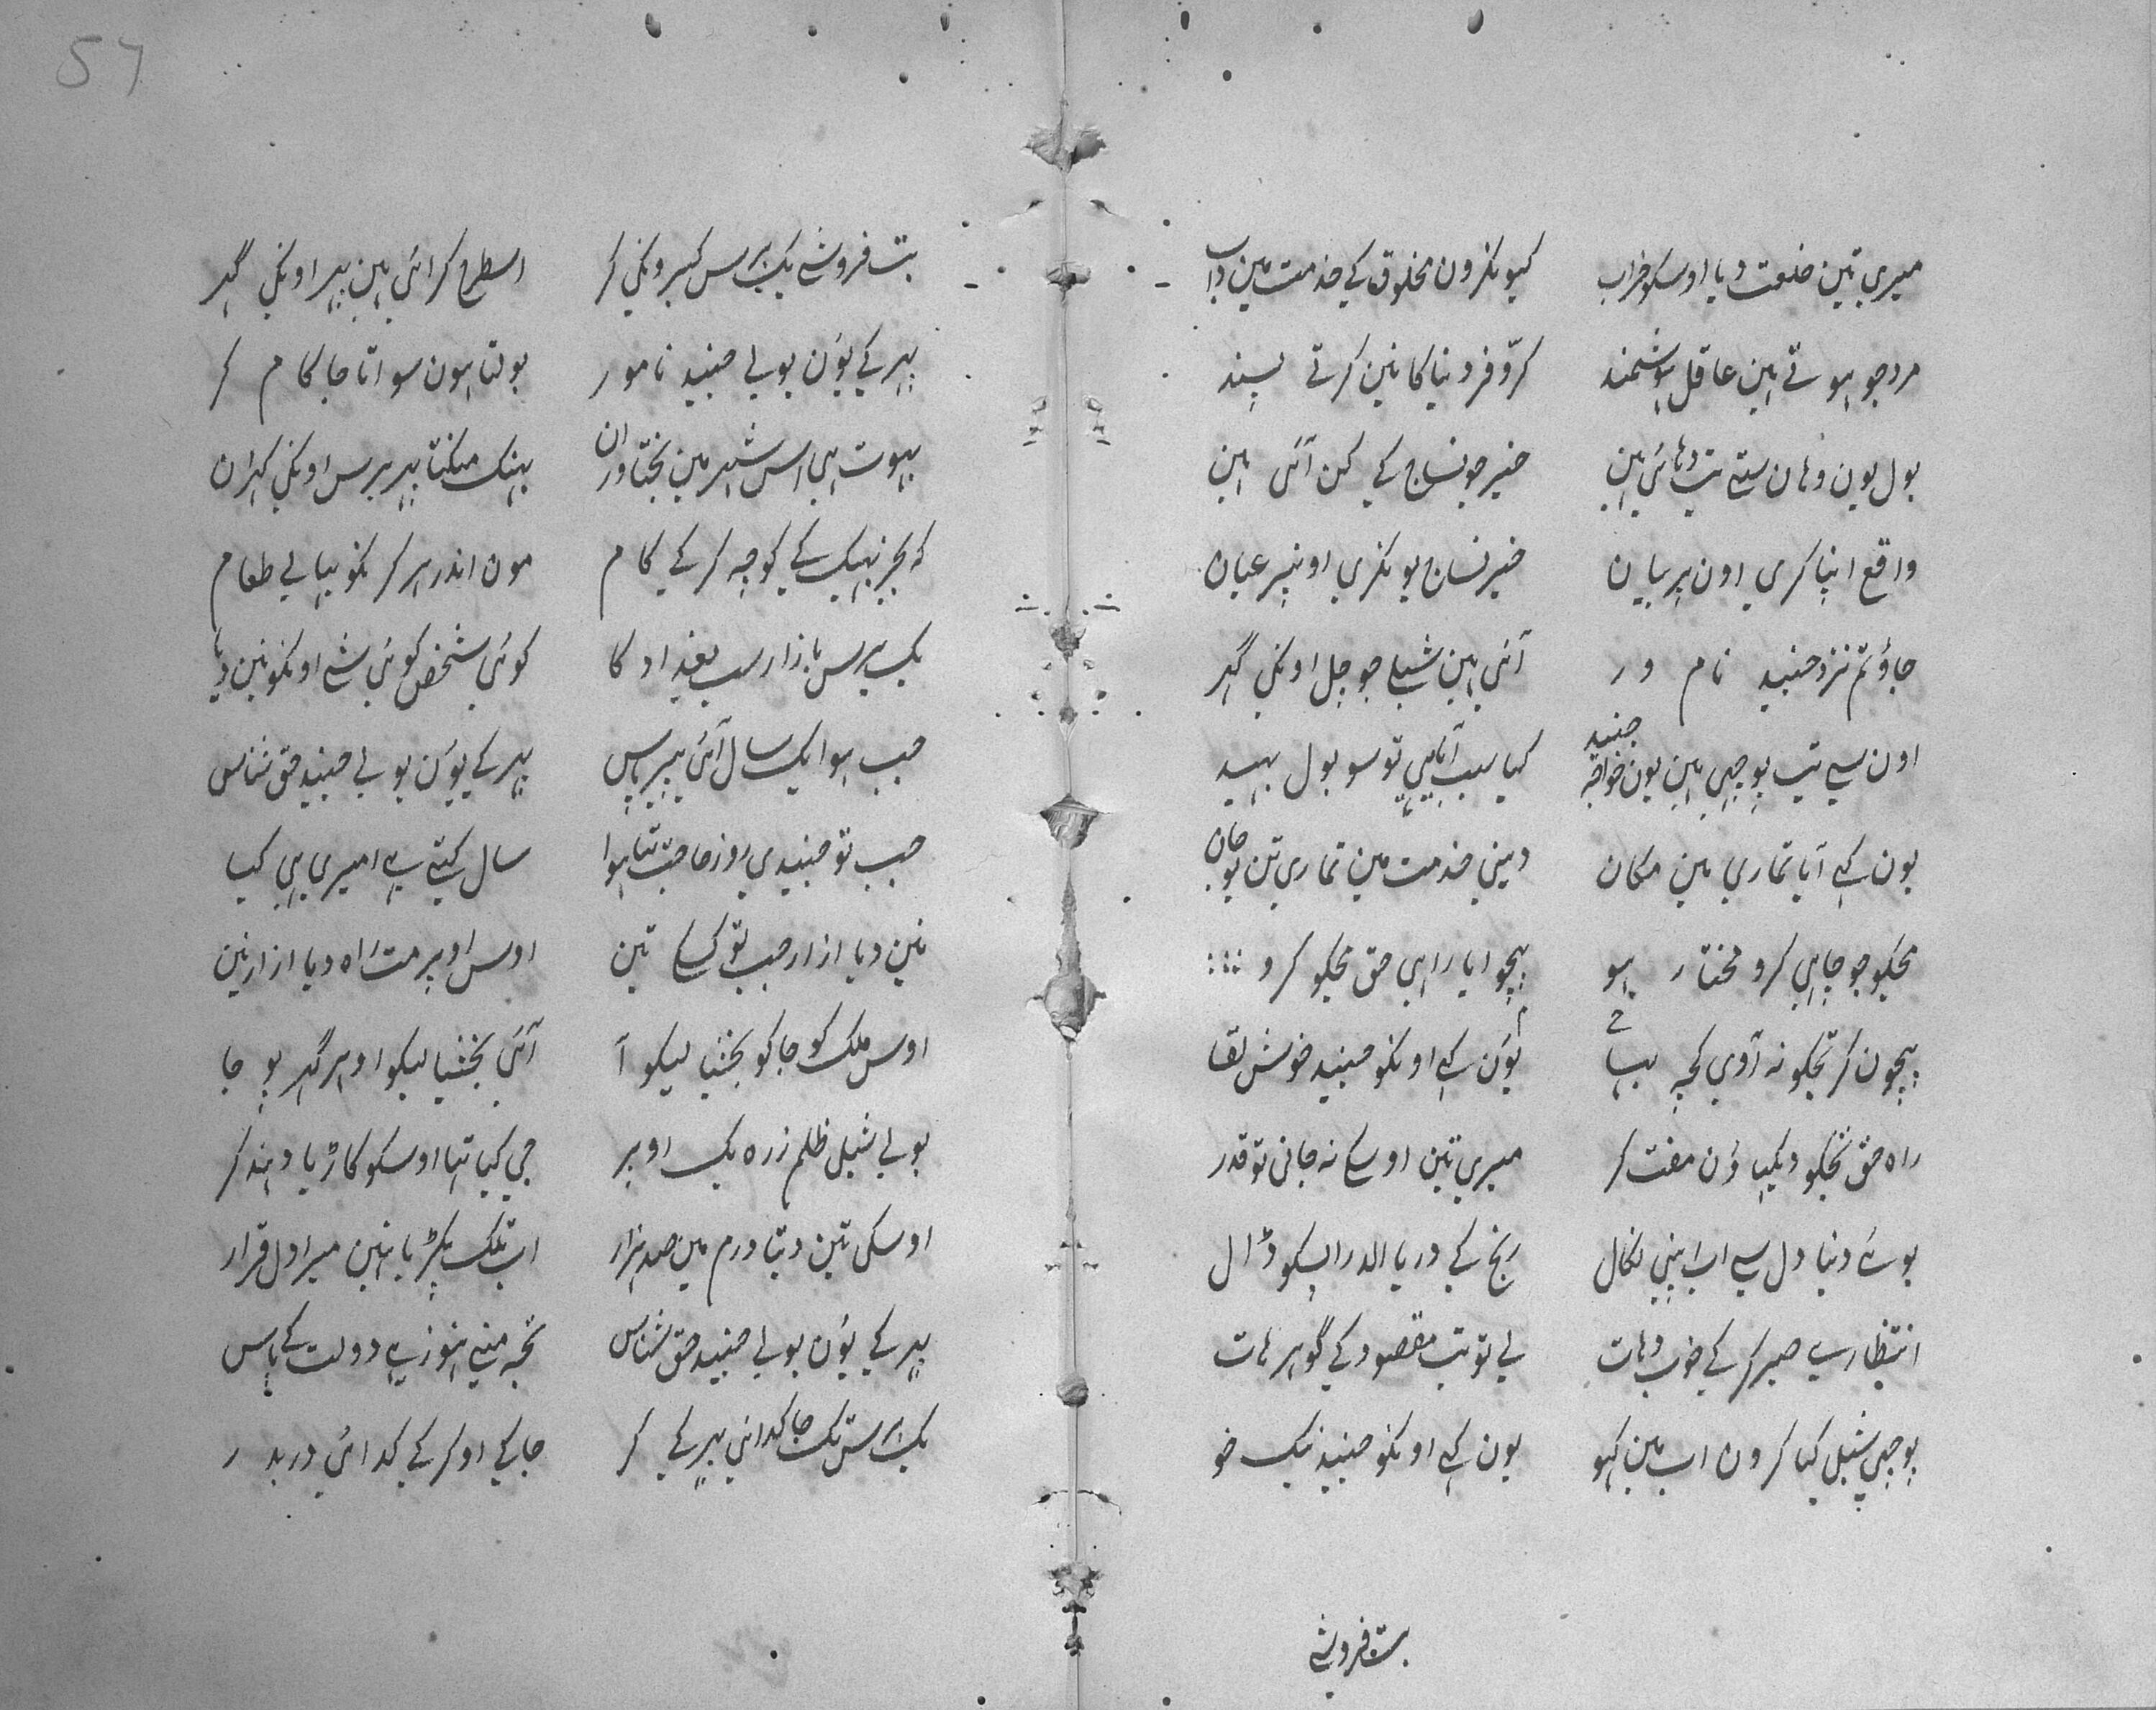 57
میری تین خلعت دیا اوسکو خراب کیونکرون مخلوق کے خدمت مین داب
مرد جو ہوتے ہین عاقل ہوشمند کرّ و فر دنیا کا نین کرتے پسند
بول یون وہان ستے تب دہائی ہین خیر جو نساج کے کن آئی ہین
واقع اپنا کری اون پر بیان خیر نساج یونکری اونپر عیان
جاؤ تم نزد جنید نام ور آئی ہین شبلی جو چل اونکی گہر
اون سے تب پوچہی ہین یون خواجہ جنید کیا سبب آنا ہی تو سو بول بہید
یون کہے آیا تماری مین مکان دینی خدمت مین تماری تین یو جان
مجکو جو چاہی کرو مختار ہو بیچو یا راہی حق مجکو کرو
بیچون کر تجکو نہ آوی کچہ بہا یوں کہے اونکو جنید خوش لقا
راہ حق تجکو دیکہاؤن مفت کر میری تین اوسکے نہ جانی تو قدر
بوئے دنیا دل سے اب اپنی نکال رنج کے دریا اندر اپسکو ڈال
انتظاری صبر کر کے خوب دہات لے تو تب مقصود کے گوہر ہات
پوچہی شبلی کیا کرون اب مین کہو یون کہے اونکو جنید نیک خو
بت فروشے
بت فروشے یک برس کبرونکی کر اسطرح کر آئی ہین پہر اونکی گہر
پہر کے یوں بولے جنید نامور بولتا ہون سو اتا جا کام کر
بہوت ہی اس شہر مین بختاوران بہیک منکتا پہر برس اونکی گہران
کہ بجز بہیک کے کوچہ کر کے کام مون اندر ہرکز نکو بہالے طعام
یک برس بازار سب بغداد کا کوئی شخص کوئی شے اونکو نین دیا
جب ہوا یک سال آئی پہر پاس پہر کے یوں بولے جنید حق شناس
جب تو جنیدی روز صاحب تہا ہوا سال کیتے ہے امیری بہی کیا
نین دیا ازار جب تو کسکے تین اوس اوپر مت راہ دیا ازار نین
اوس ملک کو جا کو بخشا لیکو آ آئی بخشیا لیکو او ہر گہر یو جا
بولے شبلی ظلم زرہ یک اوپر جی کیا تہا اوسکو کاڑیا دہند کر
اوسکی تین دیتا درم مین صد ہزار اب تلک پکڑیا نہین میرا دل قرار
پہر کے یوں بولے جنید حق شناس تجہ منے ہنوز ہے دولت کے باس
یک برس تک جا کدائی پہر کے کر جاکے او کر کے کدائی در بدر